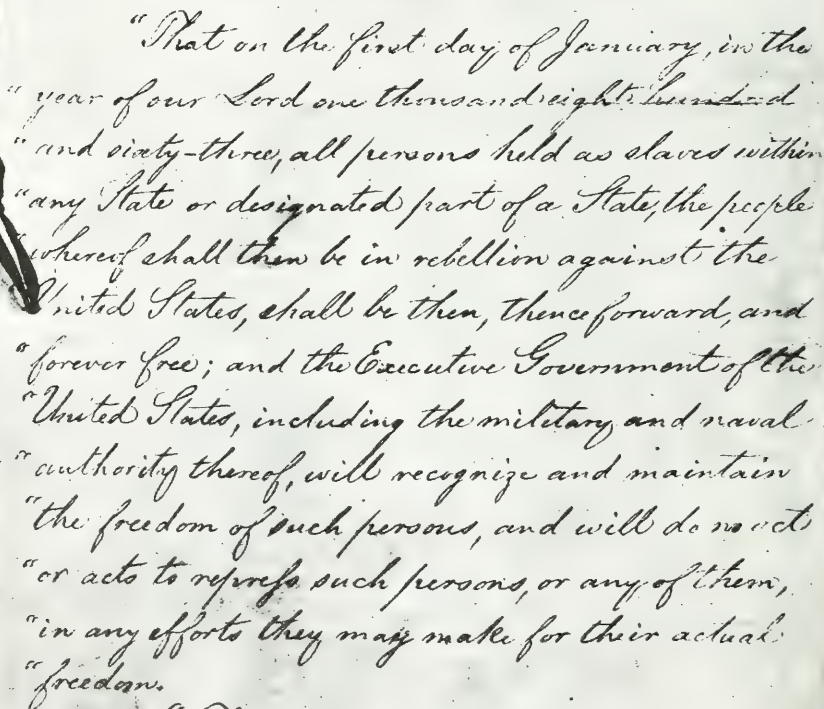 "That on the first day of January, in the
" year of our Lord one thousand eight hundred
" and sixty-three, all persons held as slaves within
" any State or designated part of a State, the people
" whereof shall then be in rebellion against the
United States, shall be then, thenceforward, and
" forever free; and the Executive Government of the
" United States, including the military and naval
" authority thereof, will recognize and maintain
" the freedom of such persons, and will do no act
" or acts to repress such persons, or any of them,
" in any efforts they may make for their actual
" freedom.